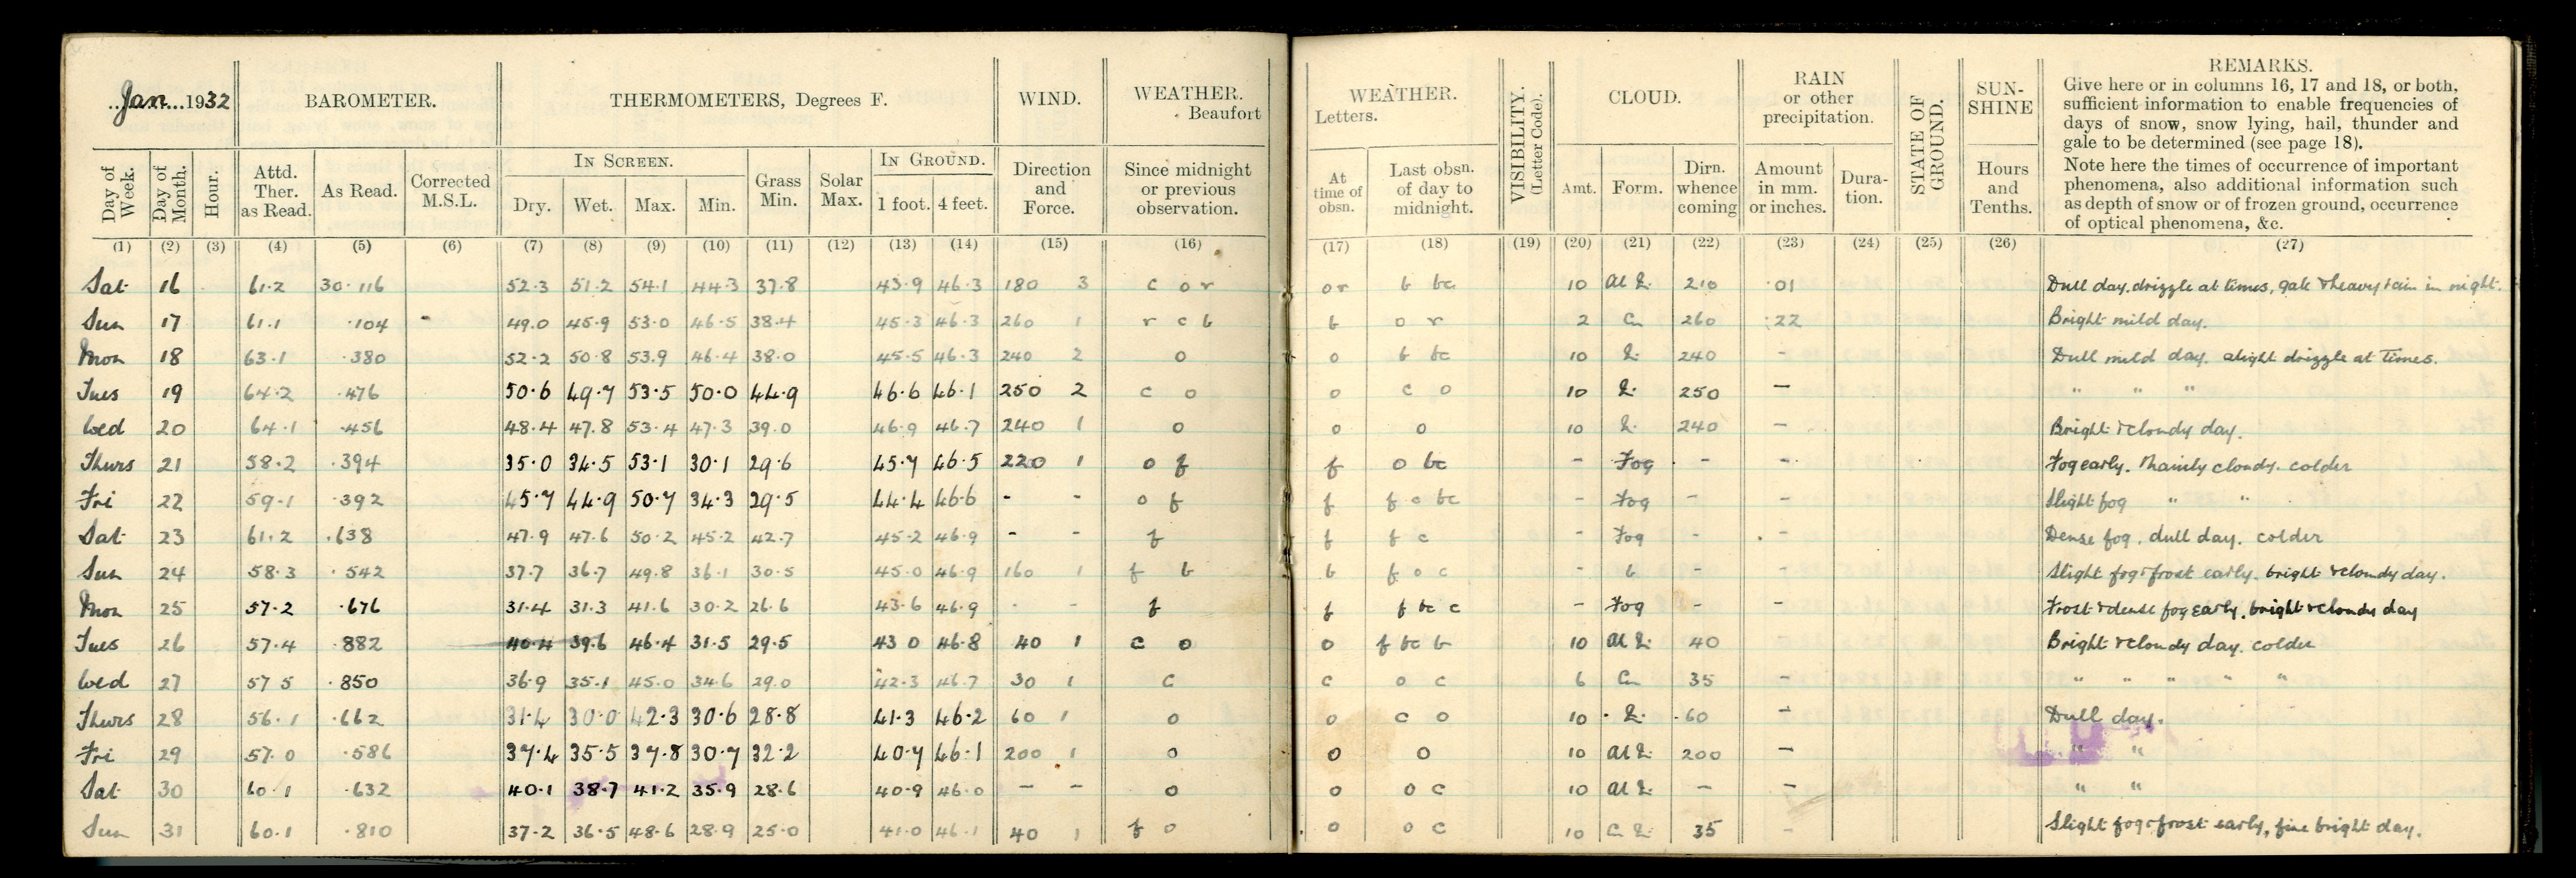 Jan. 1932
BAROMETER.
THERMOMETERS, Degrees F.
WIND.
WEATHER.
Beaufort
WEATHER.
Letters.
VISIBILITY.
(Letter Code).
CLOUD.
RAIN
or other
precipitation.
STATE OF
GROUND.
SUN-
SHINE
REMARKS.
Give here or in columns 16, 17 and 18, or both,
sufficient information to enable frequencies of
days of snow, snow lying, hail, thunder and
gale to be determined (see page 18).
Note here the times of occurrence of important
phenomena, also additional information such
as depth of snow or of frozen ground, occurrence
of optical phenomena, &c.
Day of
Week.
Day of
Month.
Hour.
Attd.
Ther.
as Read.
As Read.
Corrected
M.S.L.
IN SCREEN.
Dry. Wet. Max. Min.
Grass
Min.
Solar
Max.
IN GROUND.
1 foot. 4 feet.
Direction
and
Force.
Since midnight
or previous
observation.
At
time of
obsn.
Last obsn.
of day to
midnight.
Amt. Form.
Dirn.
whence
coming
Amount
in mm.
or inches.
Dura-
tion.
Hours
and
Tenths.
(1) (2) (3) (4) (5) (6) (7) (8) (9) (10) (11) (12) (13) (14) (15) (16) (17) (18) (19) (20) (21) (22) (23) (24) (25) (26) (27)
Sat 16 61.2 30.116 52.3 51.2 54.1 44.3 37.8 43.9 46.3 180 3 c o r o r b bc 10 210 .01 Dull day, drizzle at times, gale & heavy rain in night.
Sun 17 61.1 .104 49.0 45.9 53.0 46.5 38.4 45.3 46.3 260 1 r c b b o r 2 Cu 260 .22 Bright mild day.
Mon 18 63.1 .380 52.2 50.8 53.9 46.4 38.0 45.5 46.3 240 2 o o b bc 10 240 - Dull mild day. slight drizzle at times.
Tues 19 64.2 .476 50.6 49.7 53.5 50.0 44.9 46.6 46.1 250 2 c o o c o 10 250 - " " "
Wed 20 64.1 .456 48.4 47.8 53.4 47.3 39.0 46.9 46.7 240 1 o o o 10 240 - Bright & cloudy day.
Thurs 21 58.2 .394 35.0 34.5 53.1 30.1 29.6 45.7 46.5 220 1 o f f o bc - Fog - - Fog early. Mainly cloudy. colder
Fri 22 59.1 .392 45.7 44.9 50.7 34.3 29.5 44.4 46.6 - - o f f f o bc - Fog - - Slight fog " "
Sat 23 61.2 .638 47.9 47.6 50.2 45.2 42.7 45.2 46.9 - - f f f c - Fog - - Dense fog. dull day. colder
Sun 24 58.3 .542 37.7 36.7 49.8 36.1 30.5 45.0 46.9 160 1 f b b f o c - b - - Slight fog & frost early. bright & cloudy day.
Mon 25 57.2 .676 31.4 31.3 41.6 30.2 26.6 43.6 46.9 - - f f f bc c - Fog - - Frost & dense fog early. bright & cloudy day
Tues 26 57.4 .882 40.4 39.6 46.4 31.5 29.5 43 0 46.8 40 1 c o o f bc b 10 40 - Bright & cloudy day. colder
Wed 27 57 5 .850 36.9 35.1 45.0 34.6 29.0 42.3 46.7 30 1 c c o c 6 Cu 35 - " " " " "
Thurs 28 56.1 .662 31.4 30.0 42.3 30.6 28.8 41.3 46.2 60 1 o o c o 10 60 - Dull day.
Fri 29 57.0 .586 37.4 35.5 37.8 30.7 32.2 40.7 46.1 200 1 o o o 10 200 - " "
Sat 30 60.1 .632 40.1 38.7 41.2 35.9 28.6 40.9 46.0 - - o o o c 10 - - " "
Sun 31 60.1 .810 37.2 36.5 48.6 28.9 25.0 41.0 46.1 40 1 f o o o c 10 35 - Slight fog & frost early, fine bright day.